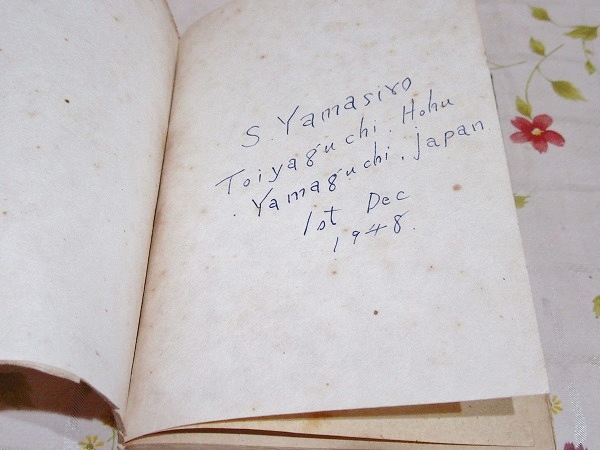 S. Yamasiro
Toiyaguchi. Hohu
. Yamaguchi. Japan.
1st Dec
1948.